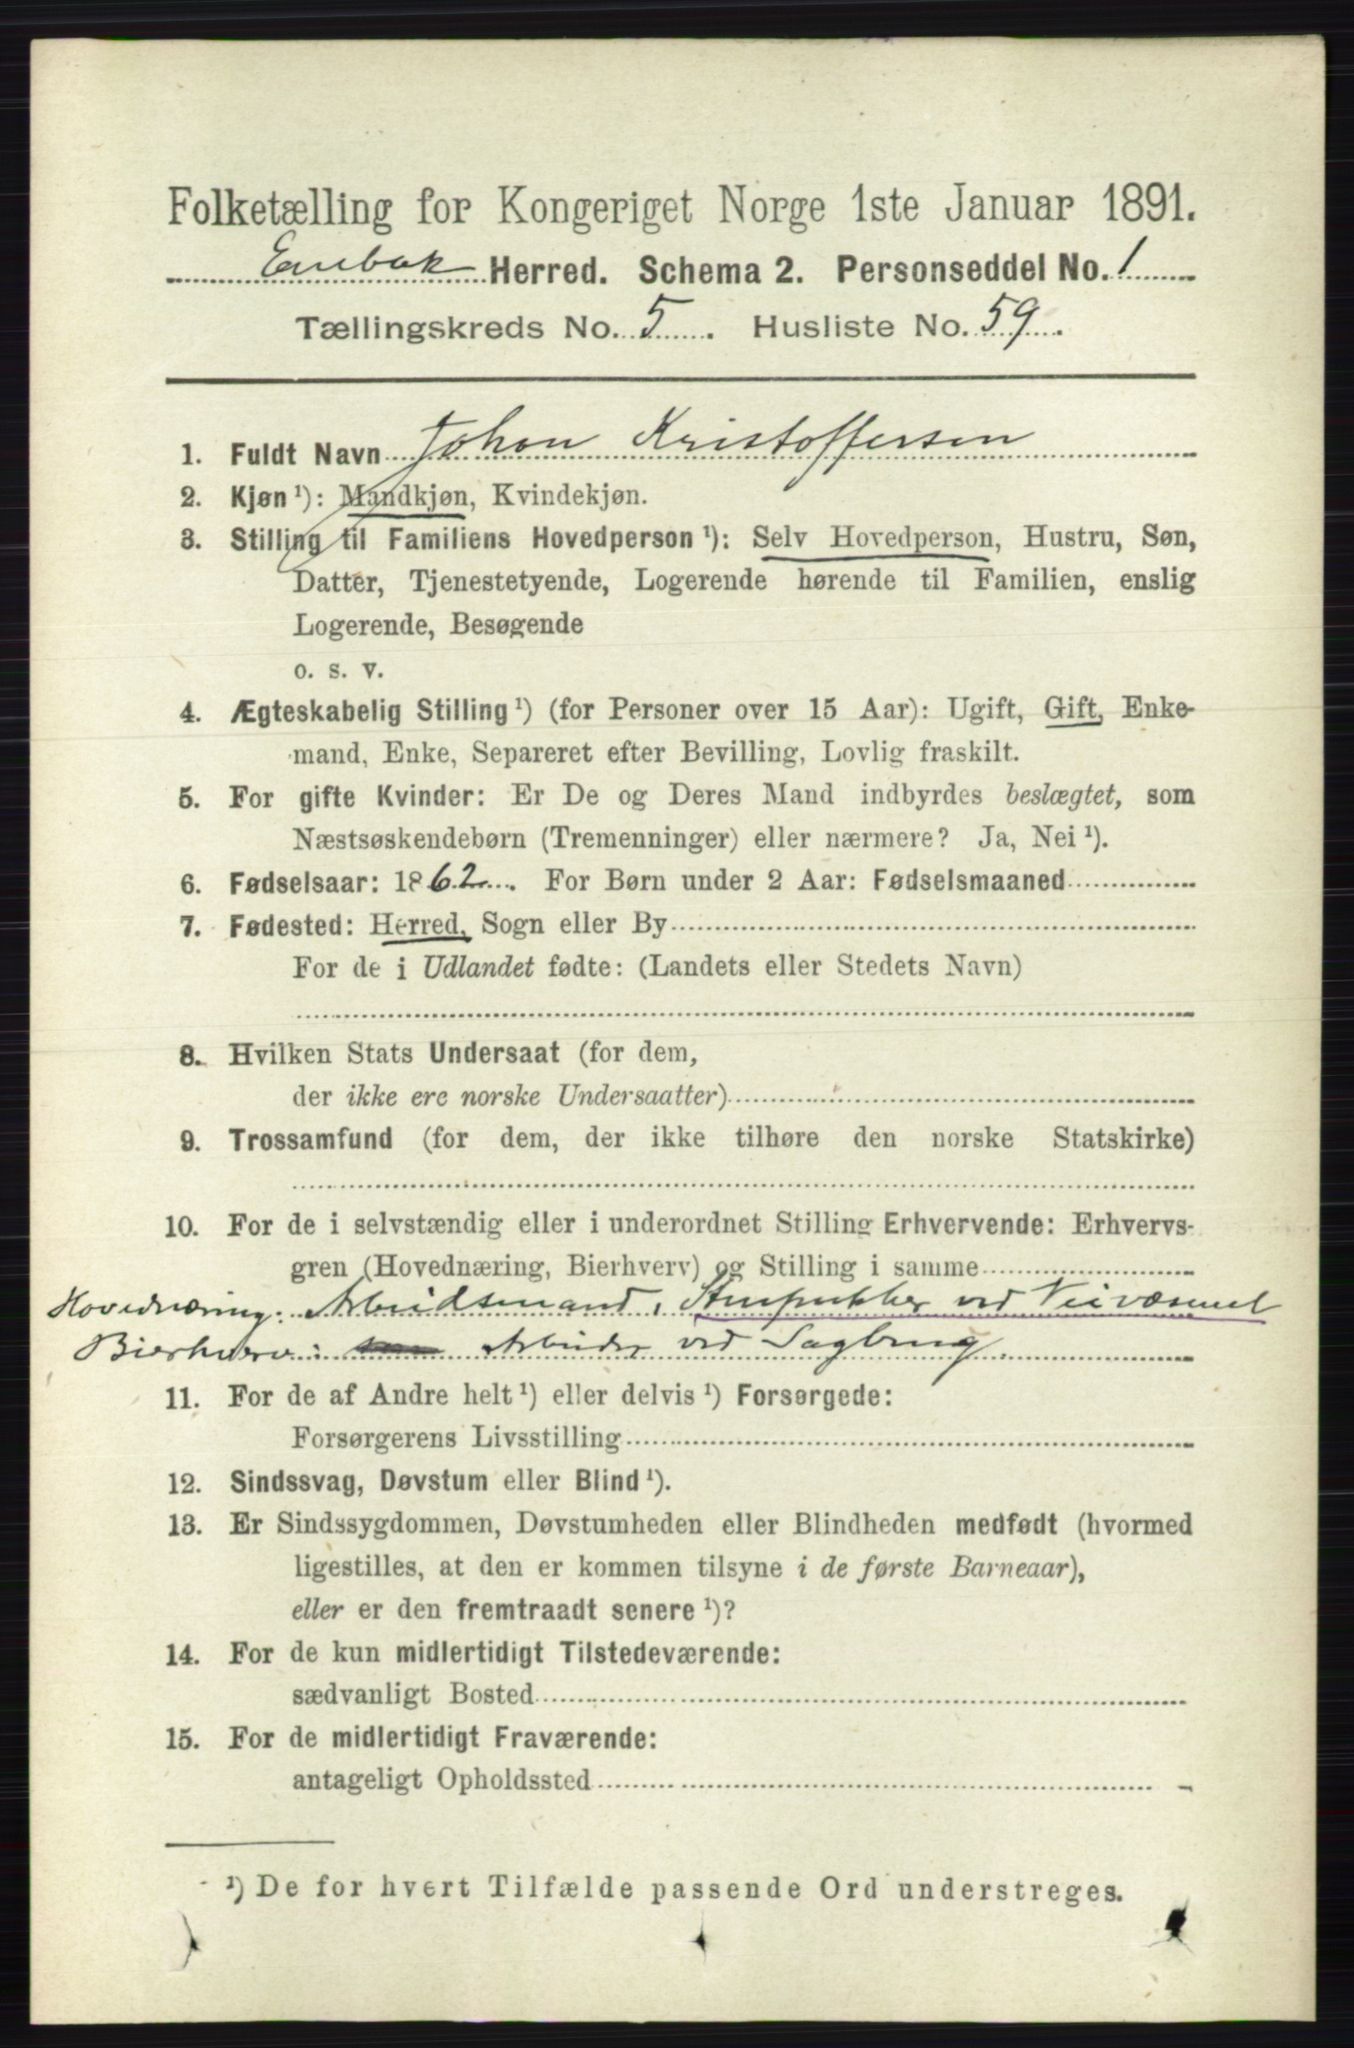 Folketælling for Kongeriget Norge 1ste Januar 1891.
Enebak Herred. Schema 2. Personseddel No. 1
Tællingskreds No. 5. Husliste No. 59.
1. Fuldt Navn Johan Kristoffersen
2. Kjøn ¹): Mandkjøn, Kvindekjøn.
3. Stilling til Familiens Hovedperson ¹): Selv Hovedperson, Hustru, Søn,
Datter, Tjenestetyende, Logerende hørende til Familien, enslig
Logerende, Besøgende
o. s. v.
4. Ægteskabelig Stilling ¹) (for Personer over 15 Aar): Ugift, Gift, Enke-
mand, Enke, Separeret efter Bevilling, Lovlig fraskilt.
5. For gifte Kvinder: Er De og Deres Mand indbyrdes beslægtet, som
Næstsøskendebørn (Tremenninger) eller nærmere? Ja, Nei ¹).
6. Fødselsaar: 1862. For Børn under 2 Aar: Fødselsmaaned
7. Fødested: Herred, Sogn eller By
For de i Udlandet fødte: (Landets eller Stedets Navn)
8. Hvilken Stats Undersaat (for dem,
der ikke ere norske Undersaatter)
9. Trossamfund (for dem, der ikke tilhøre den norske Statskirke)
10. For de i selvstændig eller i underordnet Stilling Erhvervende: Erhvervs-
gren (Hovednæring, Bierhverv) og Stilling i samme
Hovednæring: Arbeidsmand, Stenpukker ved Veivæsenet
Bierhverv: Arbeider ved Sagbrug.
11. For de af Andre helt ¹) eller delvis ¹) Forsørgede:
Forsørgerens Livsstilling
12. Sindssvag, Døvstum eller Blind ¹).
13. Er Sindssygdommen, Døvstumheden eller Blindheden medfødt (hvormed
ligestilles, at den er kommen tilsyne i de første Barneaar),
eller er den fremtraadt senere ¹)?
14. For de kun midlertidigt Tilstedeværende:
sædvanligt Bosted
15. For de midlertidigt Fraværende:
antageligt Opholdssted
¹) De for hvert Tilfælde passende Ord understreges.